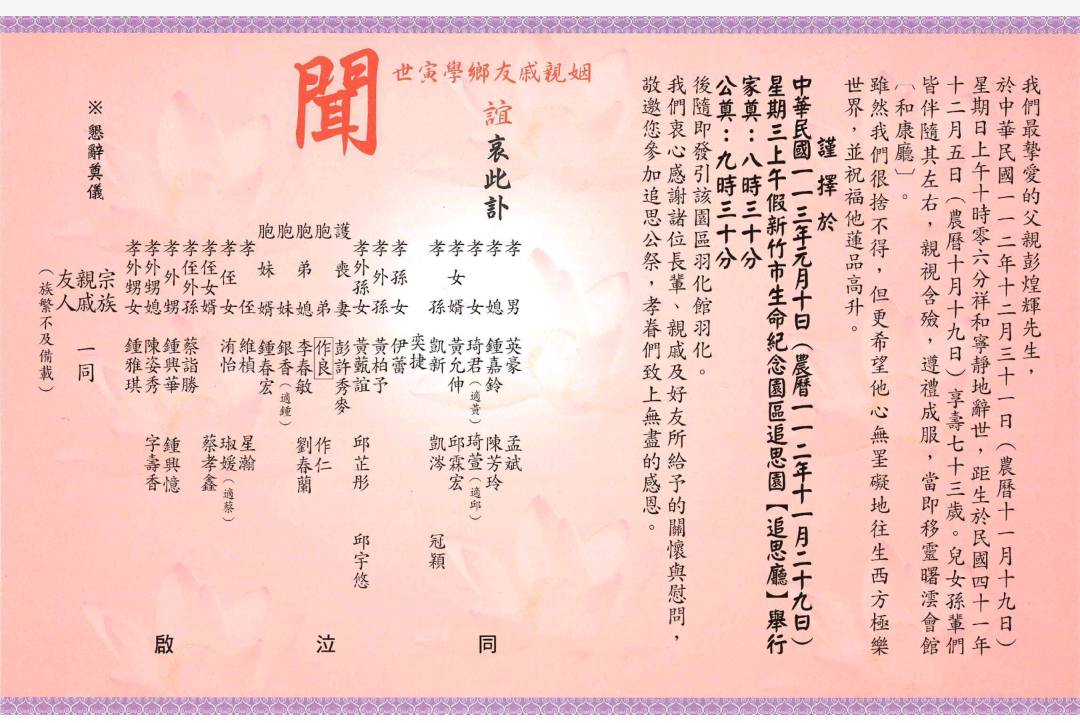 我們最摯愛的父親彭煌輝先生，
於中華民國一一二年十二月三十一日（農曆十一月十九日）
星期日上午十時零六分祥和寧靜地辭世，距生於民國四十一年
十二月五日（農曆十月十九日）享壽七十三歲。兒女孫輩們
皆伴隨其左右，親視含殮，遵禮成服，當即移靈曙澐會館
〔和康廳〕。
雖然我們很捨不得，但更希望他心無罣礙地往生西方極樂
世界，並祝福他蓮品高升。
謹擇於
中華民國一一三年元月十日（農曆一一二年十一月二十九日）
星期三上午假新竹市生命紀念園區追思園【追思廳】舉行
家奠：八時三十分
公奠：九時三十分
後隨即發引該園區羽化館羽化。
我們衷心感謝諸位長輩、親戚及好友所給予的關懷與慰問，
敬邀您參加追思公祭，孝眷們致上無盡的感恩。
姻親戚友鄉學寅世
誼
哀此訃
聞
孝男 英豪 孟斌
孝媳 鍾嘉鈴 陳芳玲
孝女 琦君（適黃） 琦萱（適邱）
孝女婿 黃允伸 邱霖宏
孝孫 凱新 凱涔 冠穎
奕捷
孝孫女 伊蕾
孝外孫 黃柏予
孝外孫女 黃甄誼 邱芷彤 邱宇悠
護喪妻 彭許秀麥
胞弟 作良 作仁
胞弟媳 李春敏 劉春蘭
胞妹 銀香（適鍾）
胞妹婿 鍾春宏
孝侄 維楨 星瀚
孝侄女 洧怡 琡媛（適蔡）
孝侄女婿 蔡孝鑫
孝侄外孫 蔡詣勝
孝外甥 鍾興華 鍾興憶
孝外甥媳 陳姿秀 字壽香
孝外甥女 鍾雅琪
宗族
親戚 一同
友人
（族繁不及備載）
同泣啟
※懇辭奠儀